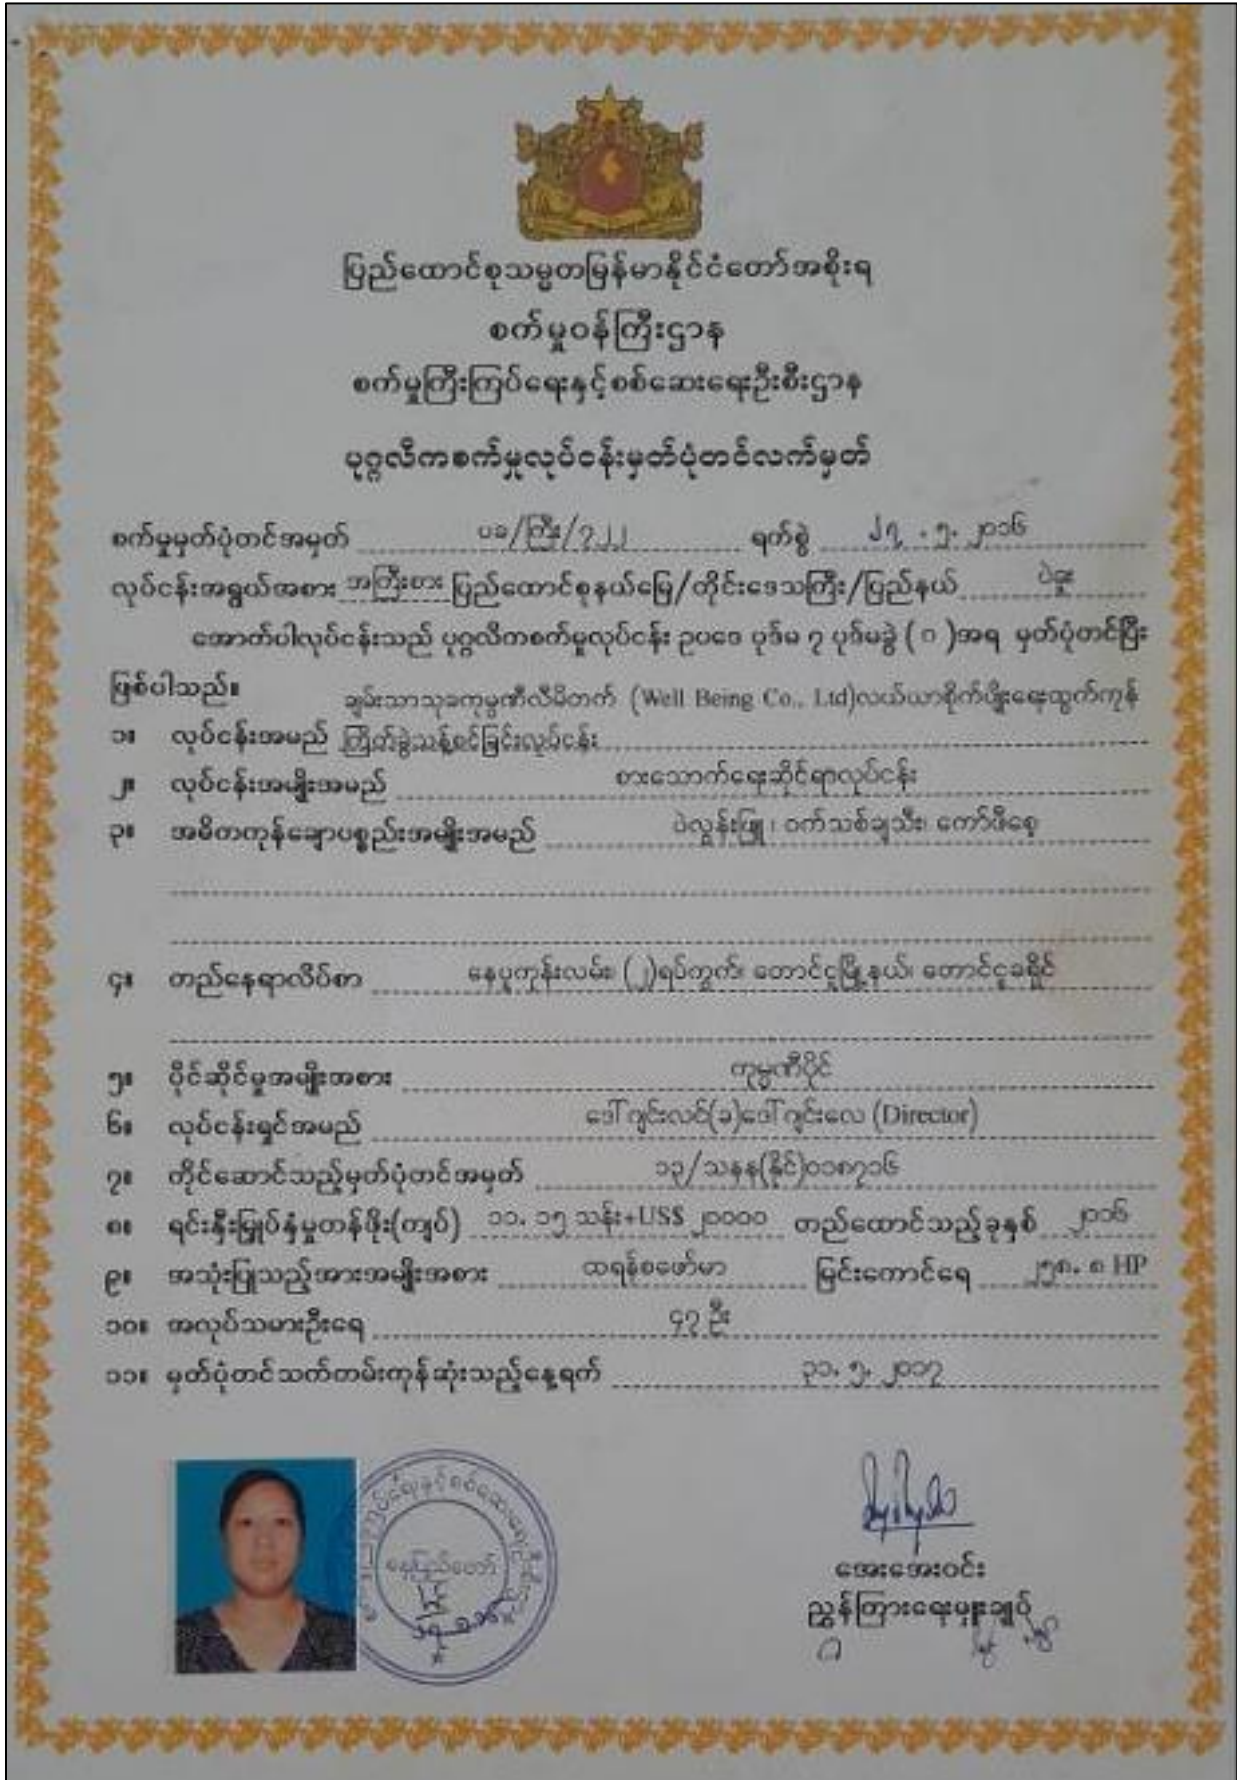 ပြည်ထောင်စုသမ္မတမြန်မာနိုင်ငံတော်အစိုးရ
စက်မှုဝန်ကြီးဌာန
စက်မှုကြီးကြပ်ရေးနှင့်စစ်ဆေးရေးဦးစီးဌာန
ပုဂ္ဂလိကစက်မှုလုပ်ငန်းမှတ်ပုံတင်လက်မှတ်
စက်မှုမှတ်ပုံတင်အမှတ် ပခ/ကြီး/၇၂၂ ရက်စွဲ ၂၇.၅.၂၀၁၆
လုပ်ငန်းအရွယ်အစား အကြီးစား ပြည်ထောင်စုနယ်မြေ/တိုင်းဒေသကြီး/ပြည်နယ် ပဲခူး
အောက်ပါလုပ်ငန်းသည် ပုဂ္ဂလိကစက်မှုလုပ်ငန်း ဥပဒေ ပုဒ်မ ၇ ပုဒ်မခွဲ (ဂ)အရ မှတ်ပုံတင်ပြီး
ဖြစ်ပါသည်။ ချမ်းသာသုခကုမ္ပဏီလီမိတက် (Well Being Co., Ltd)လယ်ယာစိုက်ပျိုးရေးထွက်ကုန်
၁။ လုပ်ငန်းအမည် ကြိတ်ခွဲသန့်စင်ခြင်းလုပ်ငန်း
၂။ လုပ်ငန်းအမျိုးအမည် စားသောက်ရေးဆိုင်ရာလုပ်ငန်း
၃။ အဓိကကုန်ချောပစ္စည်းအမျိုးအမည် ပဲလွန်းဖြူ၊ ဝက်သစ်ချသီး၊ ကော်ဖီစေ့
၄။ တည်နေရာလိပ်စာ နေပူကုန်းလမ်း၊ (၂)ရပ်ကွက်၊ တောင်ငူမြို့နယ်၊ တောင်ငူခရိုင်
၅။ ပိုင်ဆိုင်မှုအမျိုးအစား ကုမ္ပဏီပိုင်
၆။ လုပ်ငန်းရှင်အမည် ဒေါ်ဂျင်းလင်(ခ)ဒေါ်ဂျင်းလေ (Director)
၇။ ကိုင်ဆောင်သည့်မှတ်ပုံတင်အမှတ် ၁၃/သနန(နိုင်)၀၁၈၇၁၆
၈။ ရင်းနှီးမြှုပ်နှံမှုတန်ဖိုး(ကျပ်) ၁၁.၁၅ သန်း+US$ ၂၀၀၀၀ တည်ထောင်သည့်ခုနှစ် ၂၀၁၆
၉။ အသုံးပြုသည့်အားအမျိုးအစား ထရန်စဖော်မာ မြင်းကောင်ရေ ၂၅၈.၈ HP
၁၀။ အလုပ်သမားဦးရေ ၄၇ ဦး
၁၁။ မှတ်ပုံတင်သက်တမ်းကုန်ဆုံးသည့်နေ့ရက် ၃၁.၅.၂၀၁၇
နေပြည်တော်
အေးအေးဝင်း
ညွှန်ကြားရေးမှူးချုပ်